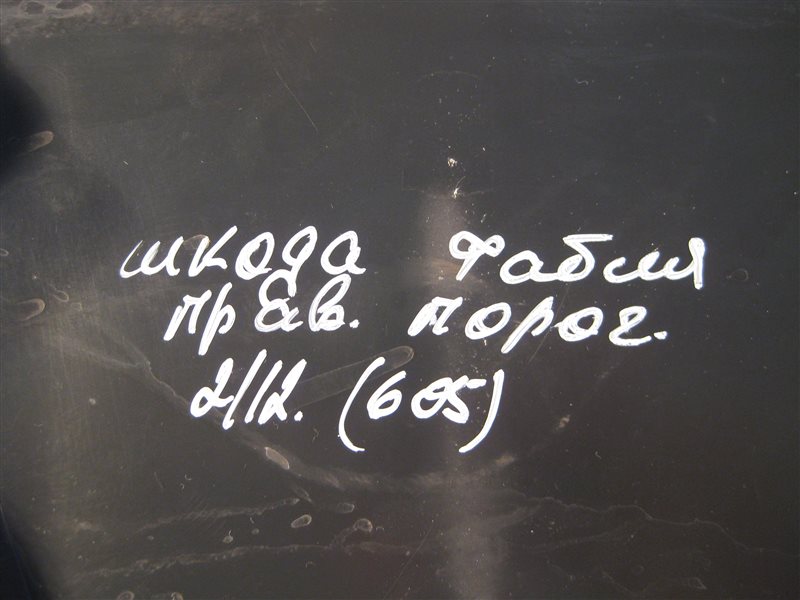 шкода фабия
прав. порог.
2/12. (605)